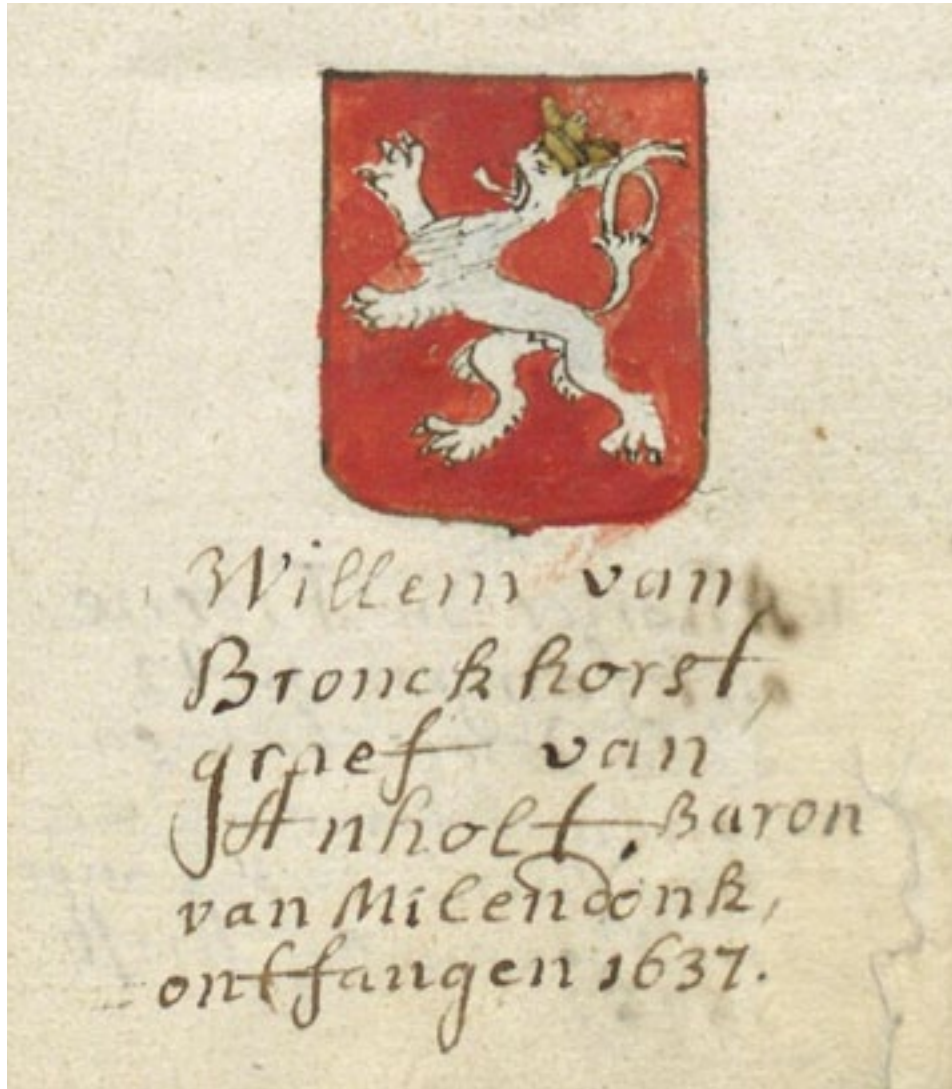 Willem van
Bronckhorst,
graef van
Anholt, Baron
van Milendonk,
ontfangen 1637.